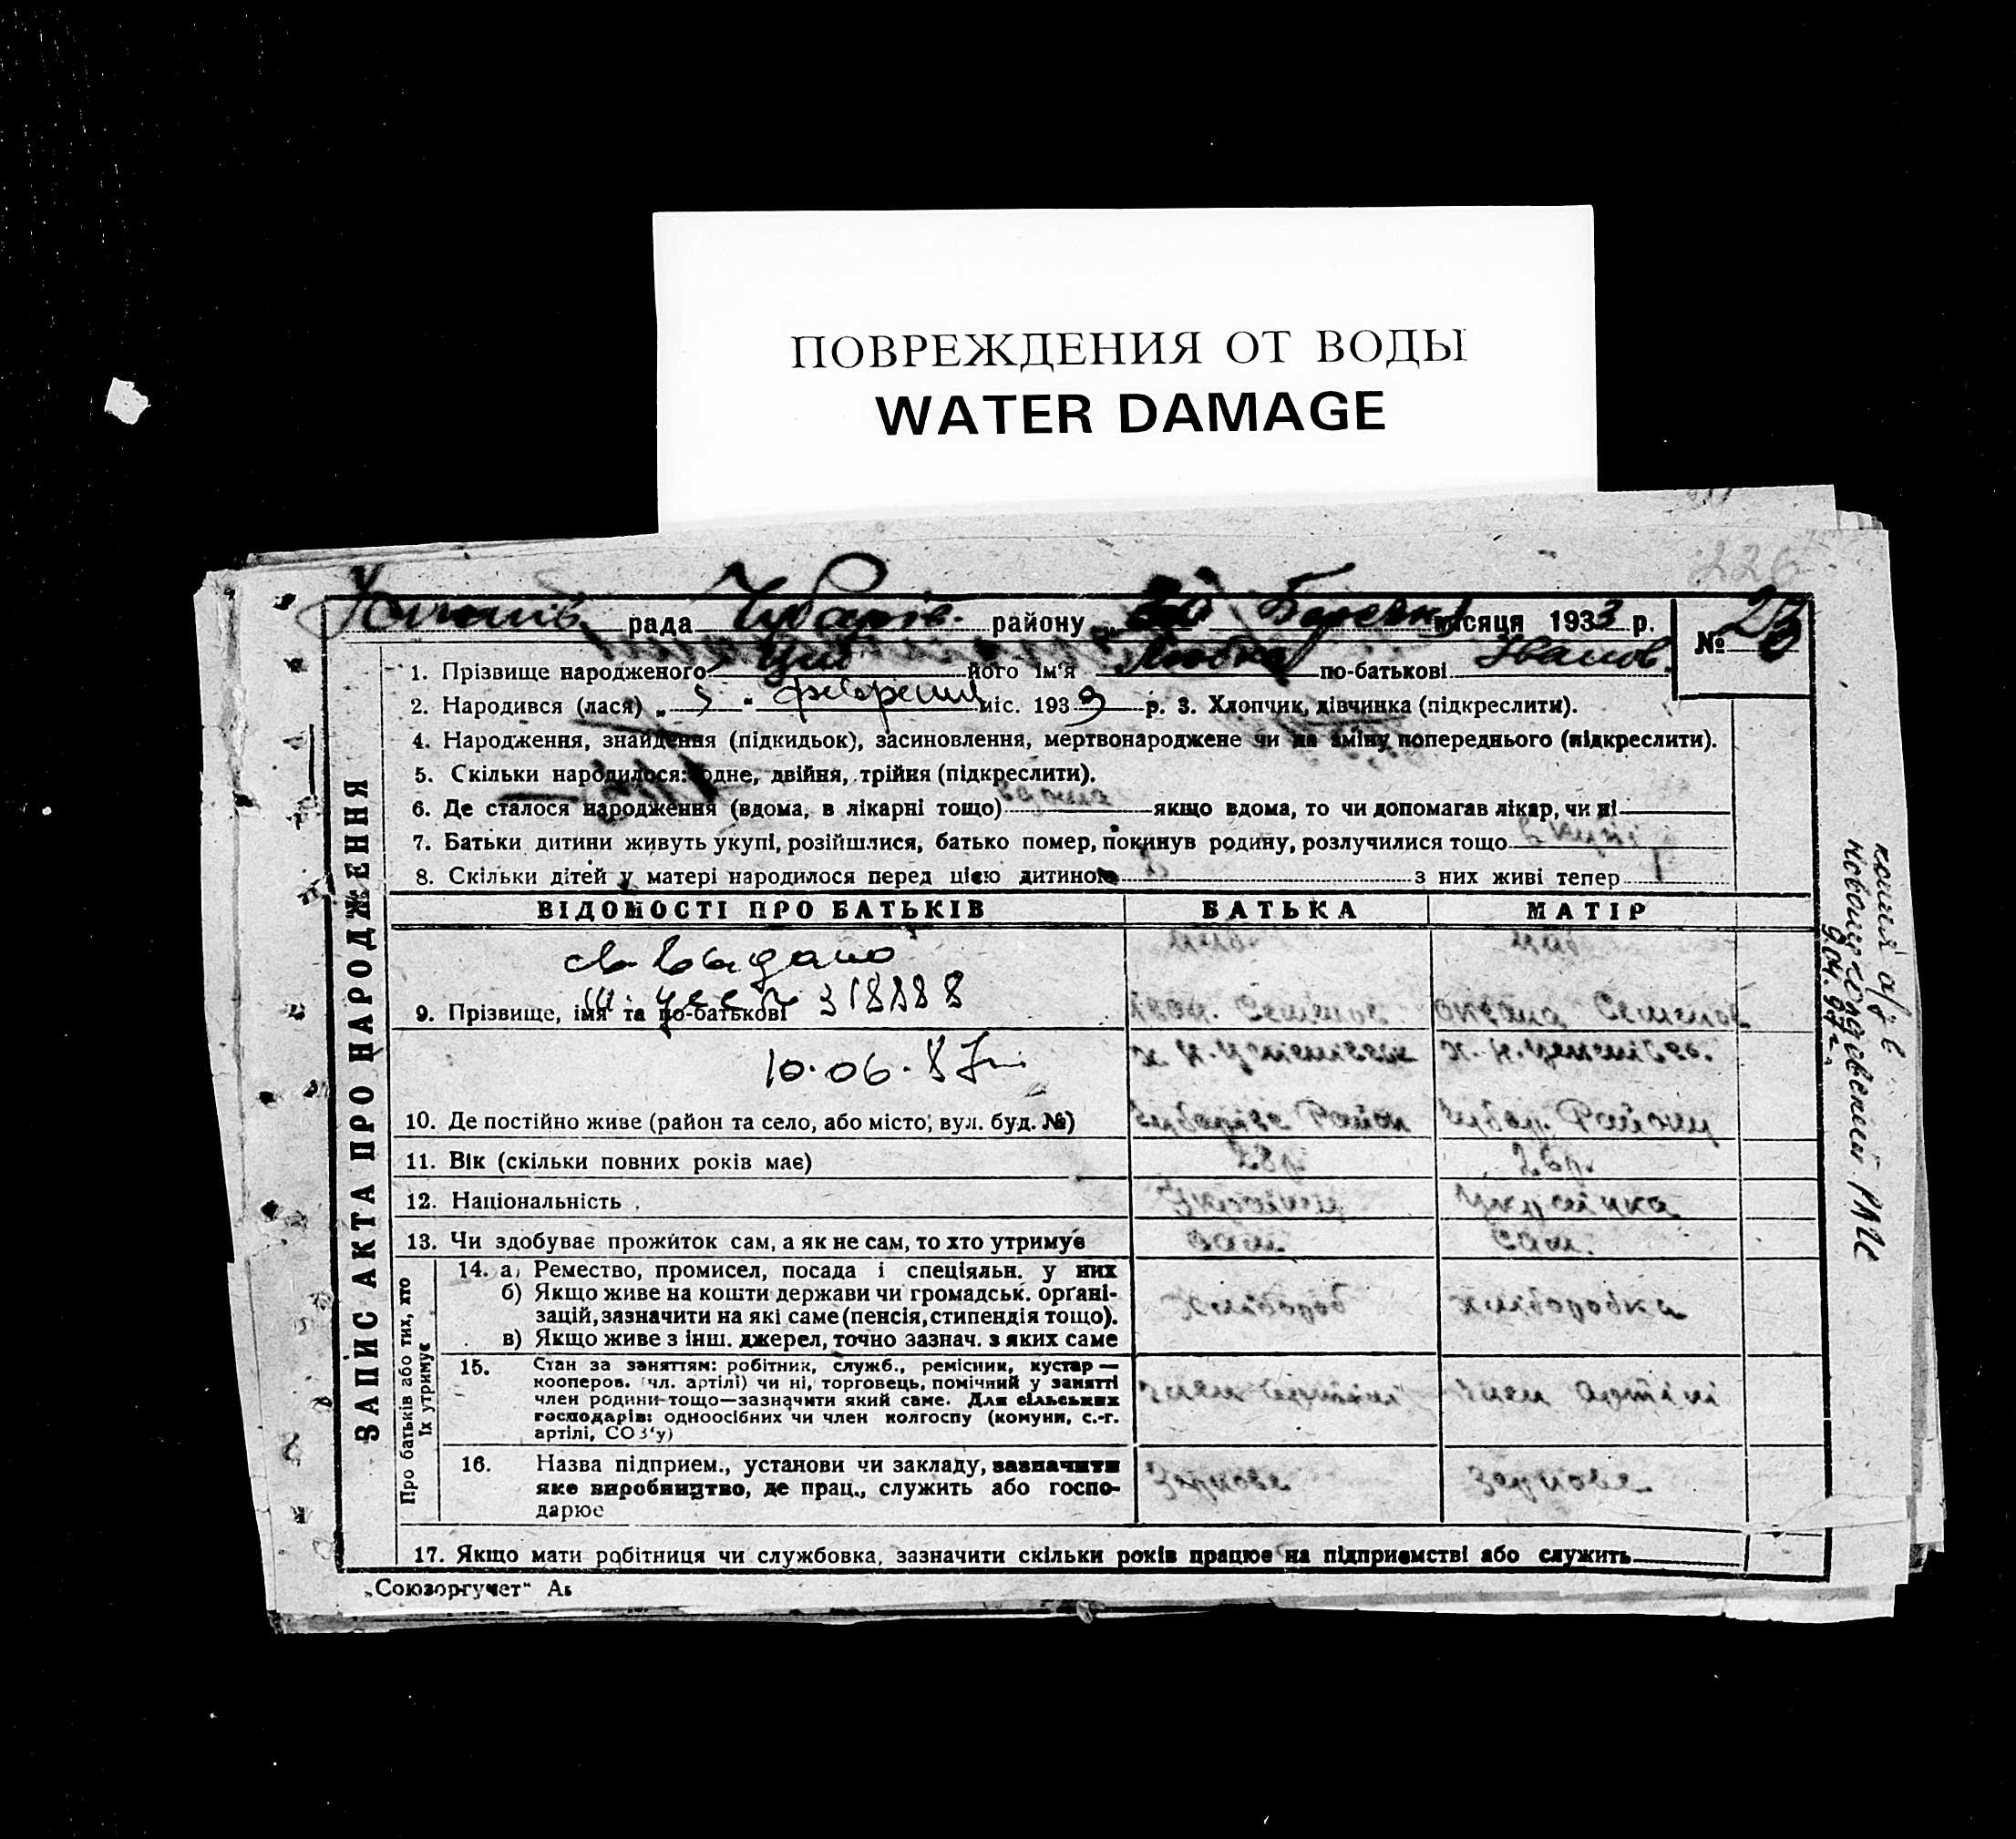 ПОВРЕЖДЕНИЯ ОТ ВОДЫ
WATER DAMAGE
226
рада Чубарів. району 20 Березня місяця 1933 р.
№ 23
1. Прізвище народженого його ім'я Любка по-батькові Іванов.
2. Народився (лася) „ 5 " февраля міс. 1933 р. 3. Хлопчик, дівчинка (підкреслити).
4. Народження, знайдення (підкидьок), засиновлення, мертвонароджене чи на зміну попереднього (підкреслити).
5. Скільки народилося: одне, двійня, трійня (підкреслити).
6. Де сталося народження (вдома, в лікарні тощо) вдома якщо вдома, то чи допомагав лікар, чи ні
7. Батьки дитини живуть укупі, розійшлися, батько помер, покинув родину, розлучилися тощо вкупі
8. Скільки дітей у матері народилося перед цією дитиною з них живі тепер
ЗАПИС АКТА ПРО НАРОДЖЕННЯ
ВІДОМОСТІ ПРО БАТЬКІВ БАТЬКА МАТІР
св. выдано
318888
9. Прізвище, імя та по-батькові Іван. Семенов Оксана Семенов
10.06.87г.
10. Де постійно живе (район та село, або місто; вул. буд. №) Район Чубар. Району
11. Вік (скільки повних років має) 28р. 26р.
12. Національність Українець Українка
13. Чи здобуває прожиток сам, а як не сам, то хто утримує сам сам.
Про батьків або тих, хто їх утримує
14. а) Ремество, промисел, посада і спеціяльн. у них
б) Якщо живе на кошти держави чи громадськ. орґані-
зацій, зазначити на які саме (пенсія, стипендія тощо). Хлібороб хліборобка
в) Якщо живе з інш. джерел, точно зазнач. з яких саме
15. Стан за заняттям: робітник, служб., ремісник, кустар —
кооперов. (чл. артілі) чи ні, торговець, помічний у занятті
член родини тощо—зазначити який саме. Для сільських член артілі член артілі
господарів: одноосібних чи член колгоспу (комуни, с.-г.
артілі, СОЗ'у)
16. Назва підприєм., установи чи закладу, зазначити
яке виробництво, де прац., служить або госпо- Зернове Зернове
дарює
17. Якщо мати робітниця чи службовка, зазначити скільки років працює на підприємстві або служить
„Союзоргучет"
копия а/з в
9.04.97г.